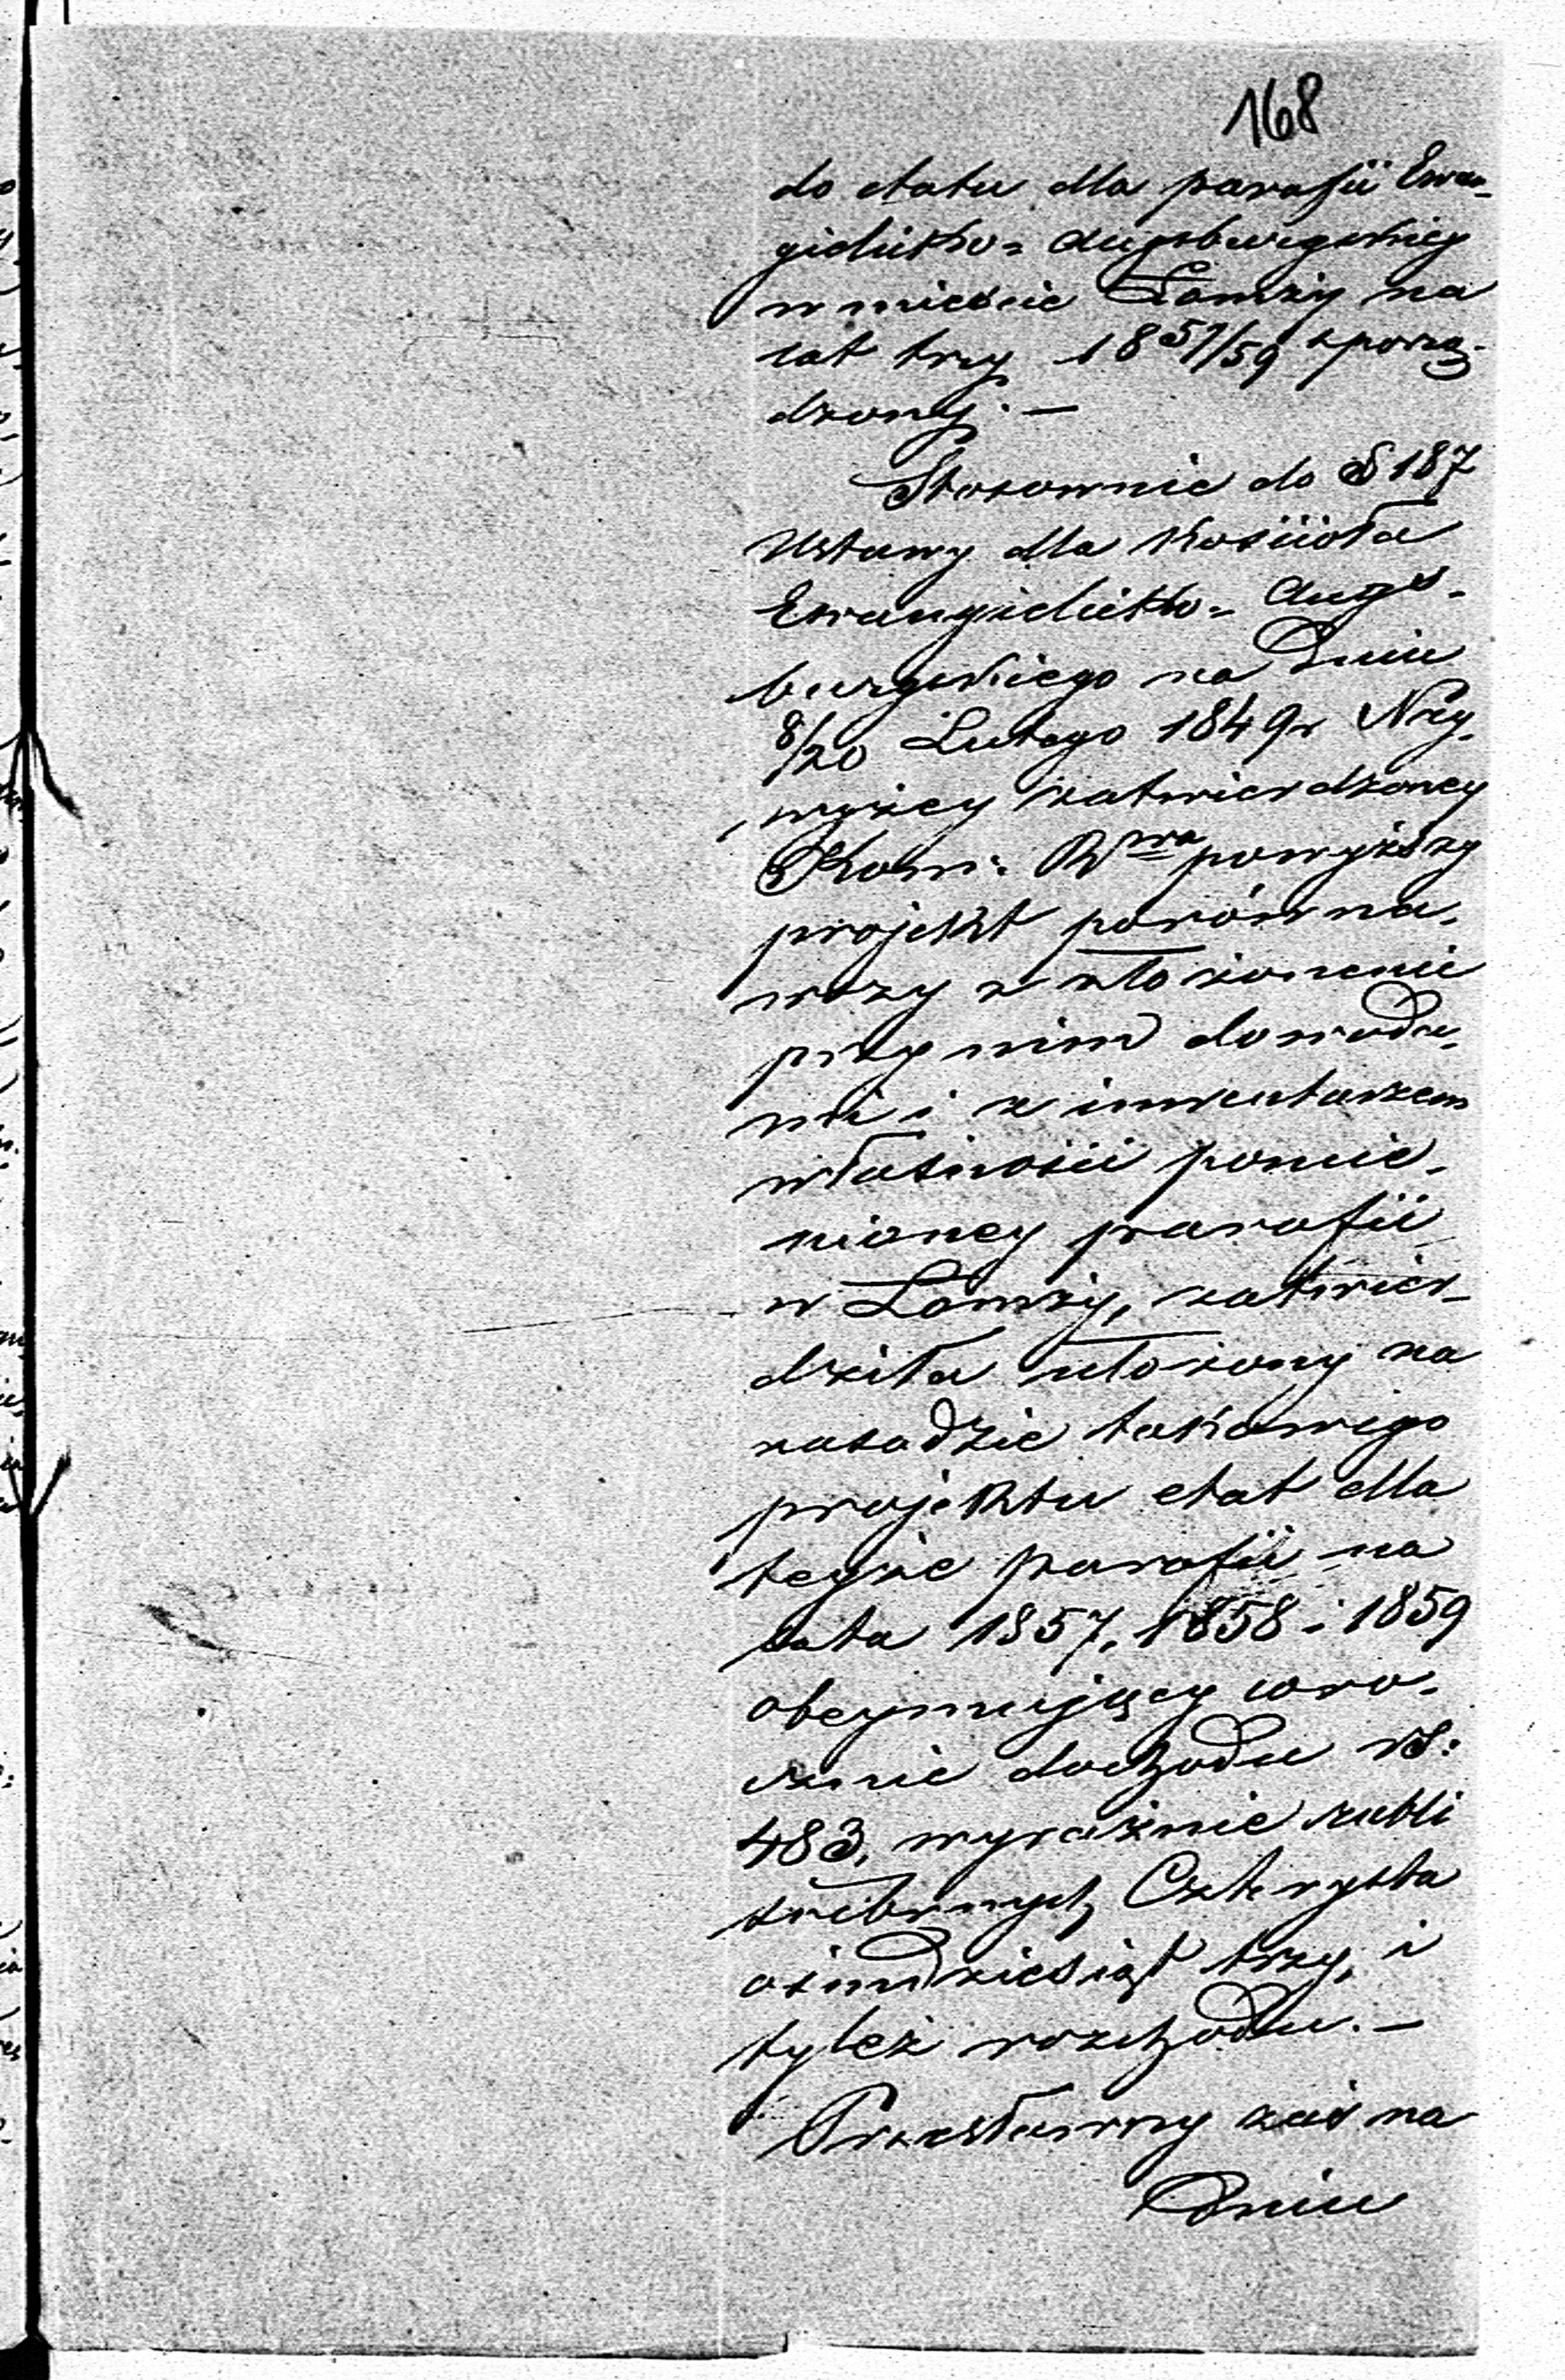 168
do etatu dla parafii Ewan-
gielicko= Augsburgskiey
w mieście Łomży na
lat trzy 18 57/59 sporzą-
dzony. —
Stosownie do § 187
Ustawy dla Kościoła
Ewangielicko= Augs-
burgskiego na Dniu
8/20 Lutego 1849 r Nay-
wyżey zatwierdzoney
Kom: Rząwa powyższy
projekt porówna-
wszy z złożonemi
przy nim dowoda-
mi i z inwentarzem
własności pomie-
nioney parafii
w Łomży, zatwier-
dziła ułożony na
zasadzie takowego
projektu etat dla
teyże parafii na
lata 1857, 1858 i 1859
obeymujący coro-
cznie dochodu rs:
483, wyraźnie rubli
srebrnych Czterysta
ośmdziesiąt trzy, i
tyleż rozchodu. —
Przesławszy zaś na
Dniu